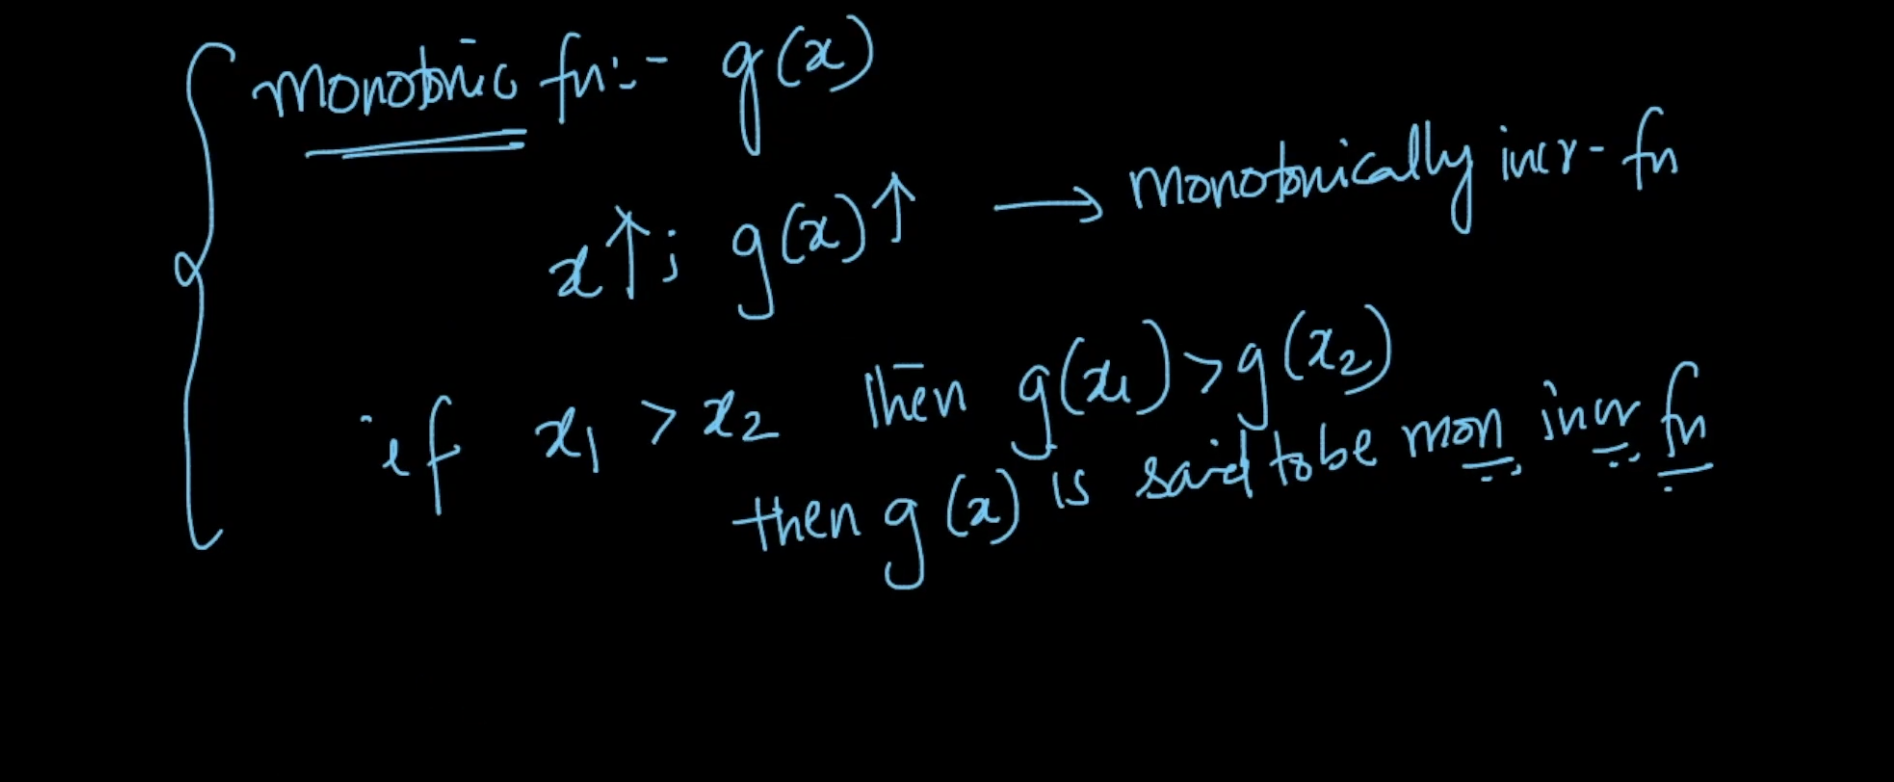 monotonic fn:- g(x)
x↑; g(x)↑ → monotonically incr- fn
if x₁ > x₂ then g(x₁) > g(x₂)
then g(x) is said to be mon incr fn